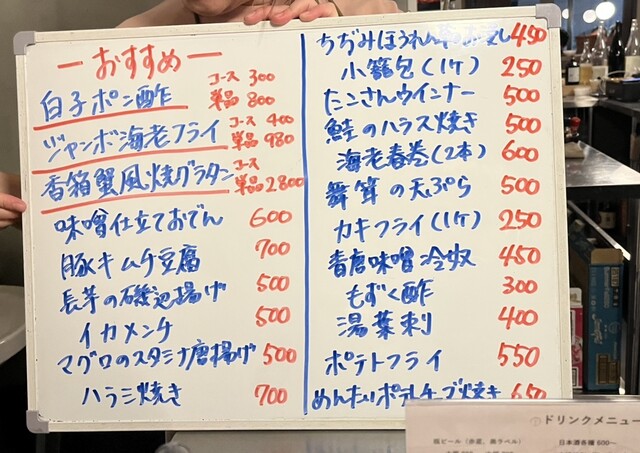 ーおすすめー
白子ポン酢 コース 300 単品 800
ジャンボ海老フライ コース 400 単品 980
香箱蟹風焼グラタン コース 単品 2800
味噌仕立ておでん 600
豚キムチ豆腐 700
長芋の磯辺揚げ 500
イカメンチ 500
マグロのスタミナ唐揚げ 500
ハラミ焼き 700
ちぢみほうれん草のお浸し 450
小籠包(1ヶ) 250
たこさんウインナー 500
鮭のハラス焼き 500
海老春巻(2本) 600
舞茸の天ぷら 500
カキフライ(1ヶ) 250
青唐味噌冷奴 450
もずく酢 300
湯葉刺 400
ポテトフライ 550
めんたいポテトチーズ焼き 650
ドリンクメニュー
瓶ビール(赤星、黒ラベル)
日本酒各種 600~